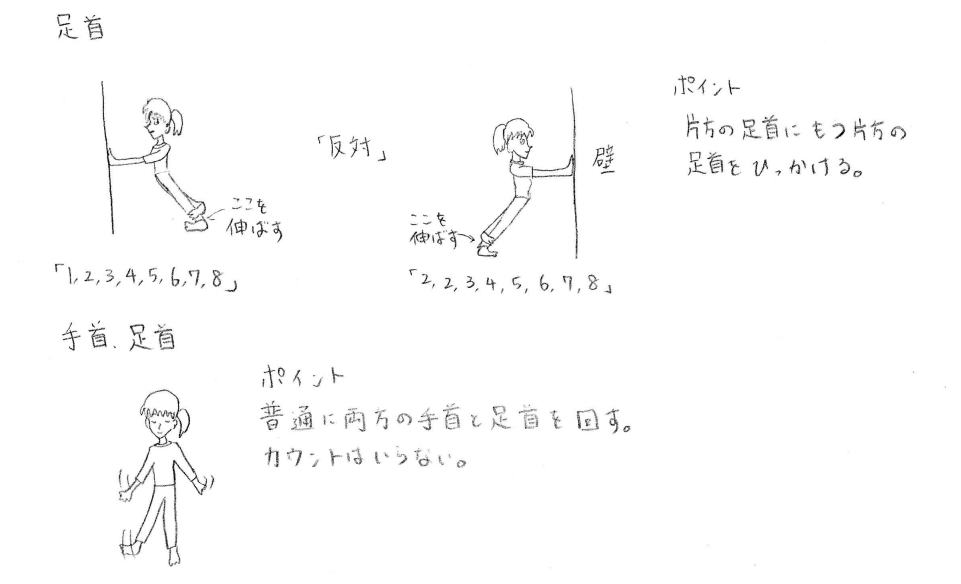 足首
ポイント
片方の足首にもう片方の
足首をひっかける。
「反対」
壁
ここを
伸ばす
ここを
伸ばす
「1,2,3,4,5,6,7,8」
「2,2,3,4,5,6,7,8」
手首、足首
ポイント
普通に両方の手首と足首を回す。
カウントはいらない。